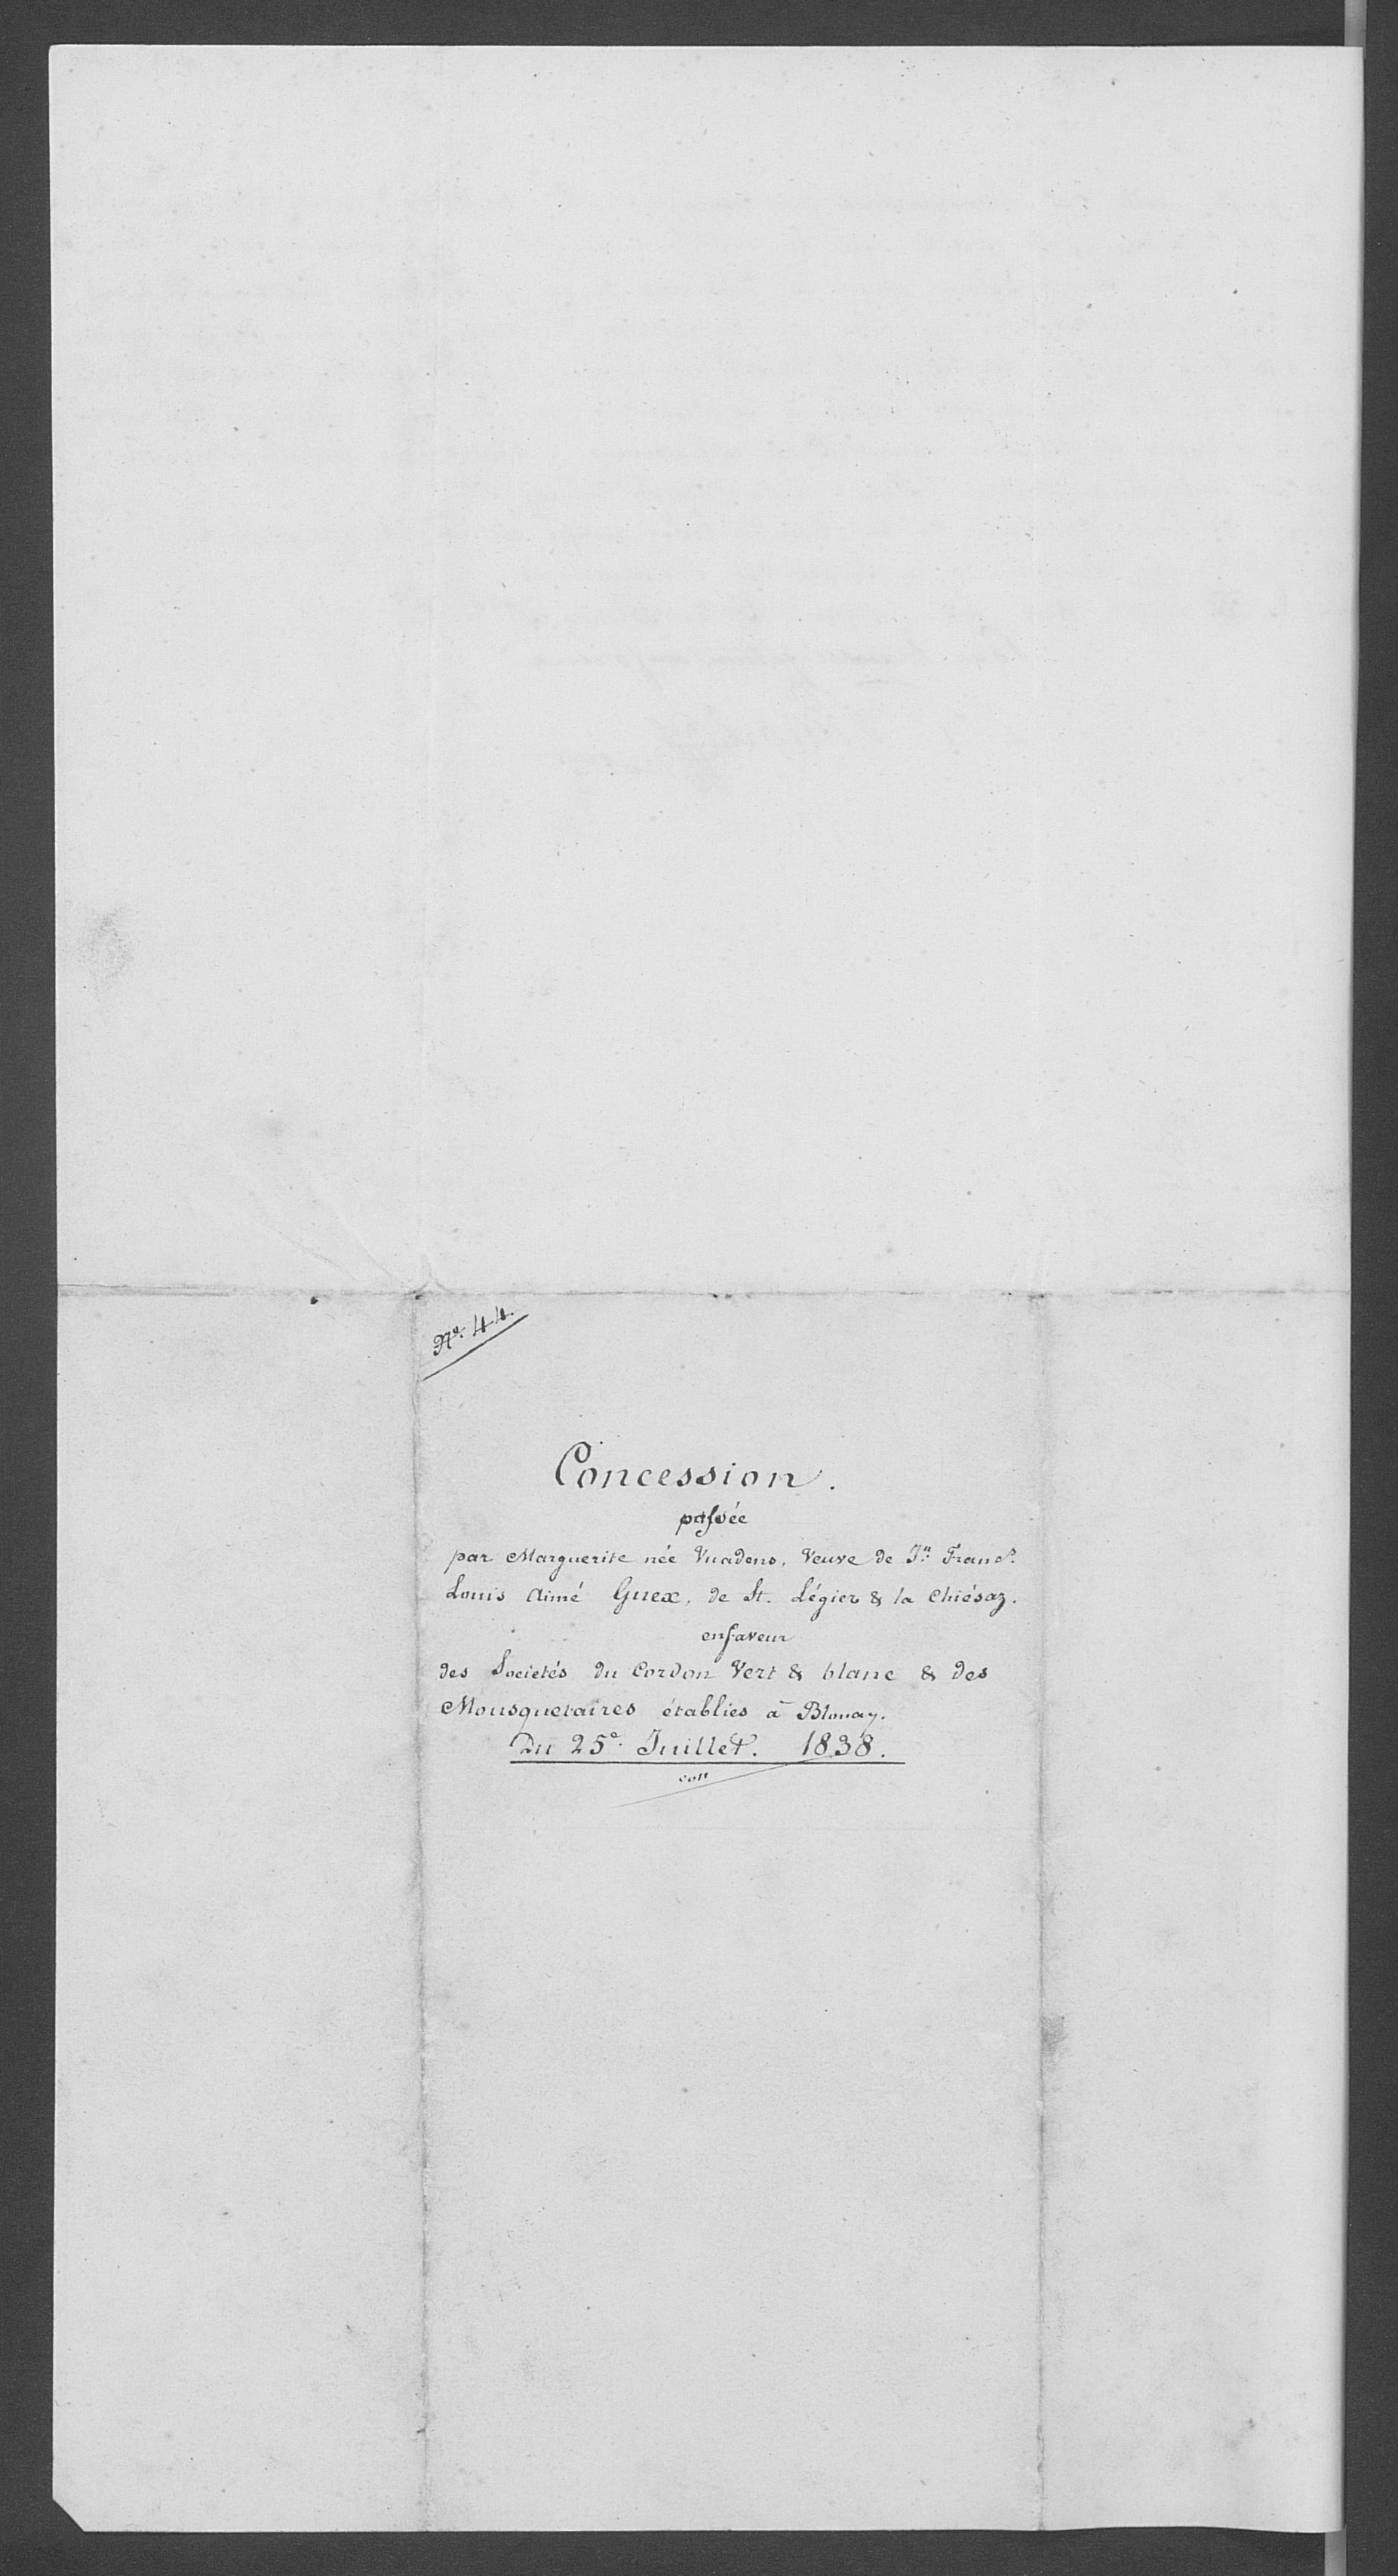 N° 44.
Concession.
passée
par Marguerite née Vuadens, Veuve de Jn. Franç.s
Louis Aimé Guex, de St. Légier & la Chiésaz.
en faveur
des Societés du Cordon Vert & blanc & des
Mousquetaires établies à Blonay.
Du 25e. Juillet. 1838.